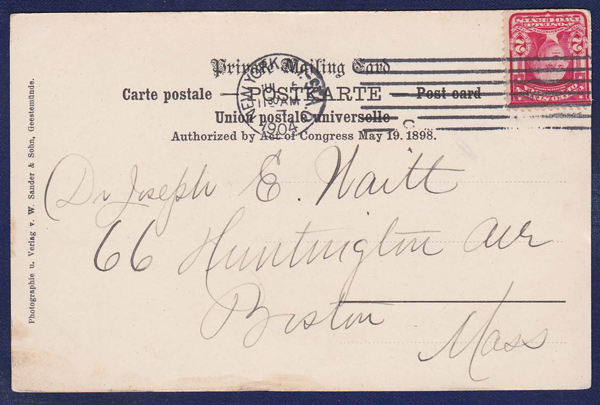 Private Mailing Card
Carte postale — POSTKARTE — Post card
Union postale universelle
Authorized by Act of Congress May 19. 1898.
NEW YORK, N.Y.-STA.
1904
Dr Joseph E. Waitt
66 Huntington Ave
Boston
Mass
Photographie u. Verlag v. W. Sander & Sohn, Geestemünde.
2 2